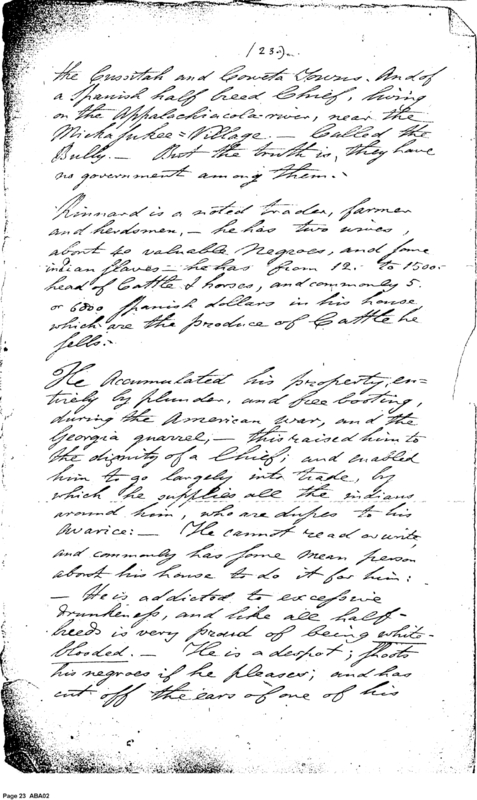 (23.)
the Cussitah and Coweta Towns. And of
a Spanish half breed Chief, living
on the Appalachiacola river, near the
Mickasukee = Village. — Called the
Bully. — But the truth is, they have
no government among them.
Kinnard is a noted trader, farmer
and herdsmen, — he has two wives,
about 40 valuable Negroes, and some
indian slaves — he has from 12. to 1500.
head of Cattle & horses, and commonly 5.
or 6000 Spanish dollars in his house,
which are the produce of Cattle he
sells.
He Accumulated his property, en=
tirely by plunder, and free booting,
during the American war, and the
Georgia quarrel, — this raised him to
the dignity of a Chief; and enabled
him to go largely into trade, by
which he supplies all the indians
around him, who are dupes to his
avarice: — He cannot read or write,
and commonly has some mean person
about his house to do it for him:
— He is addicted to excessive
drunkeness, and like all half-
breeds is very proud of being white-
blooded. — He is a despot; shoots
his negroes if he pleases; and has
cut off the ears of one of his
Page 23 ABA02